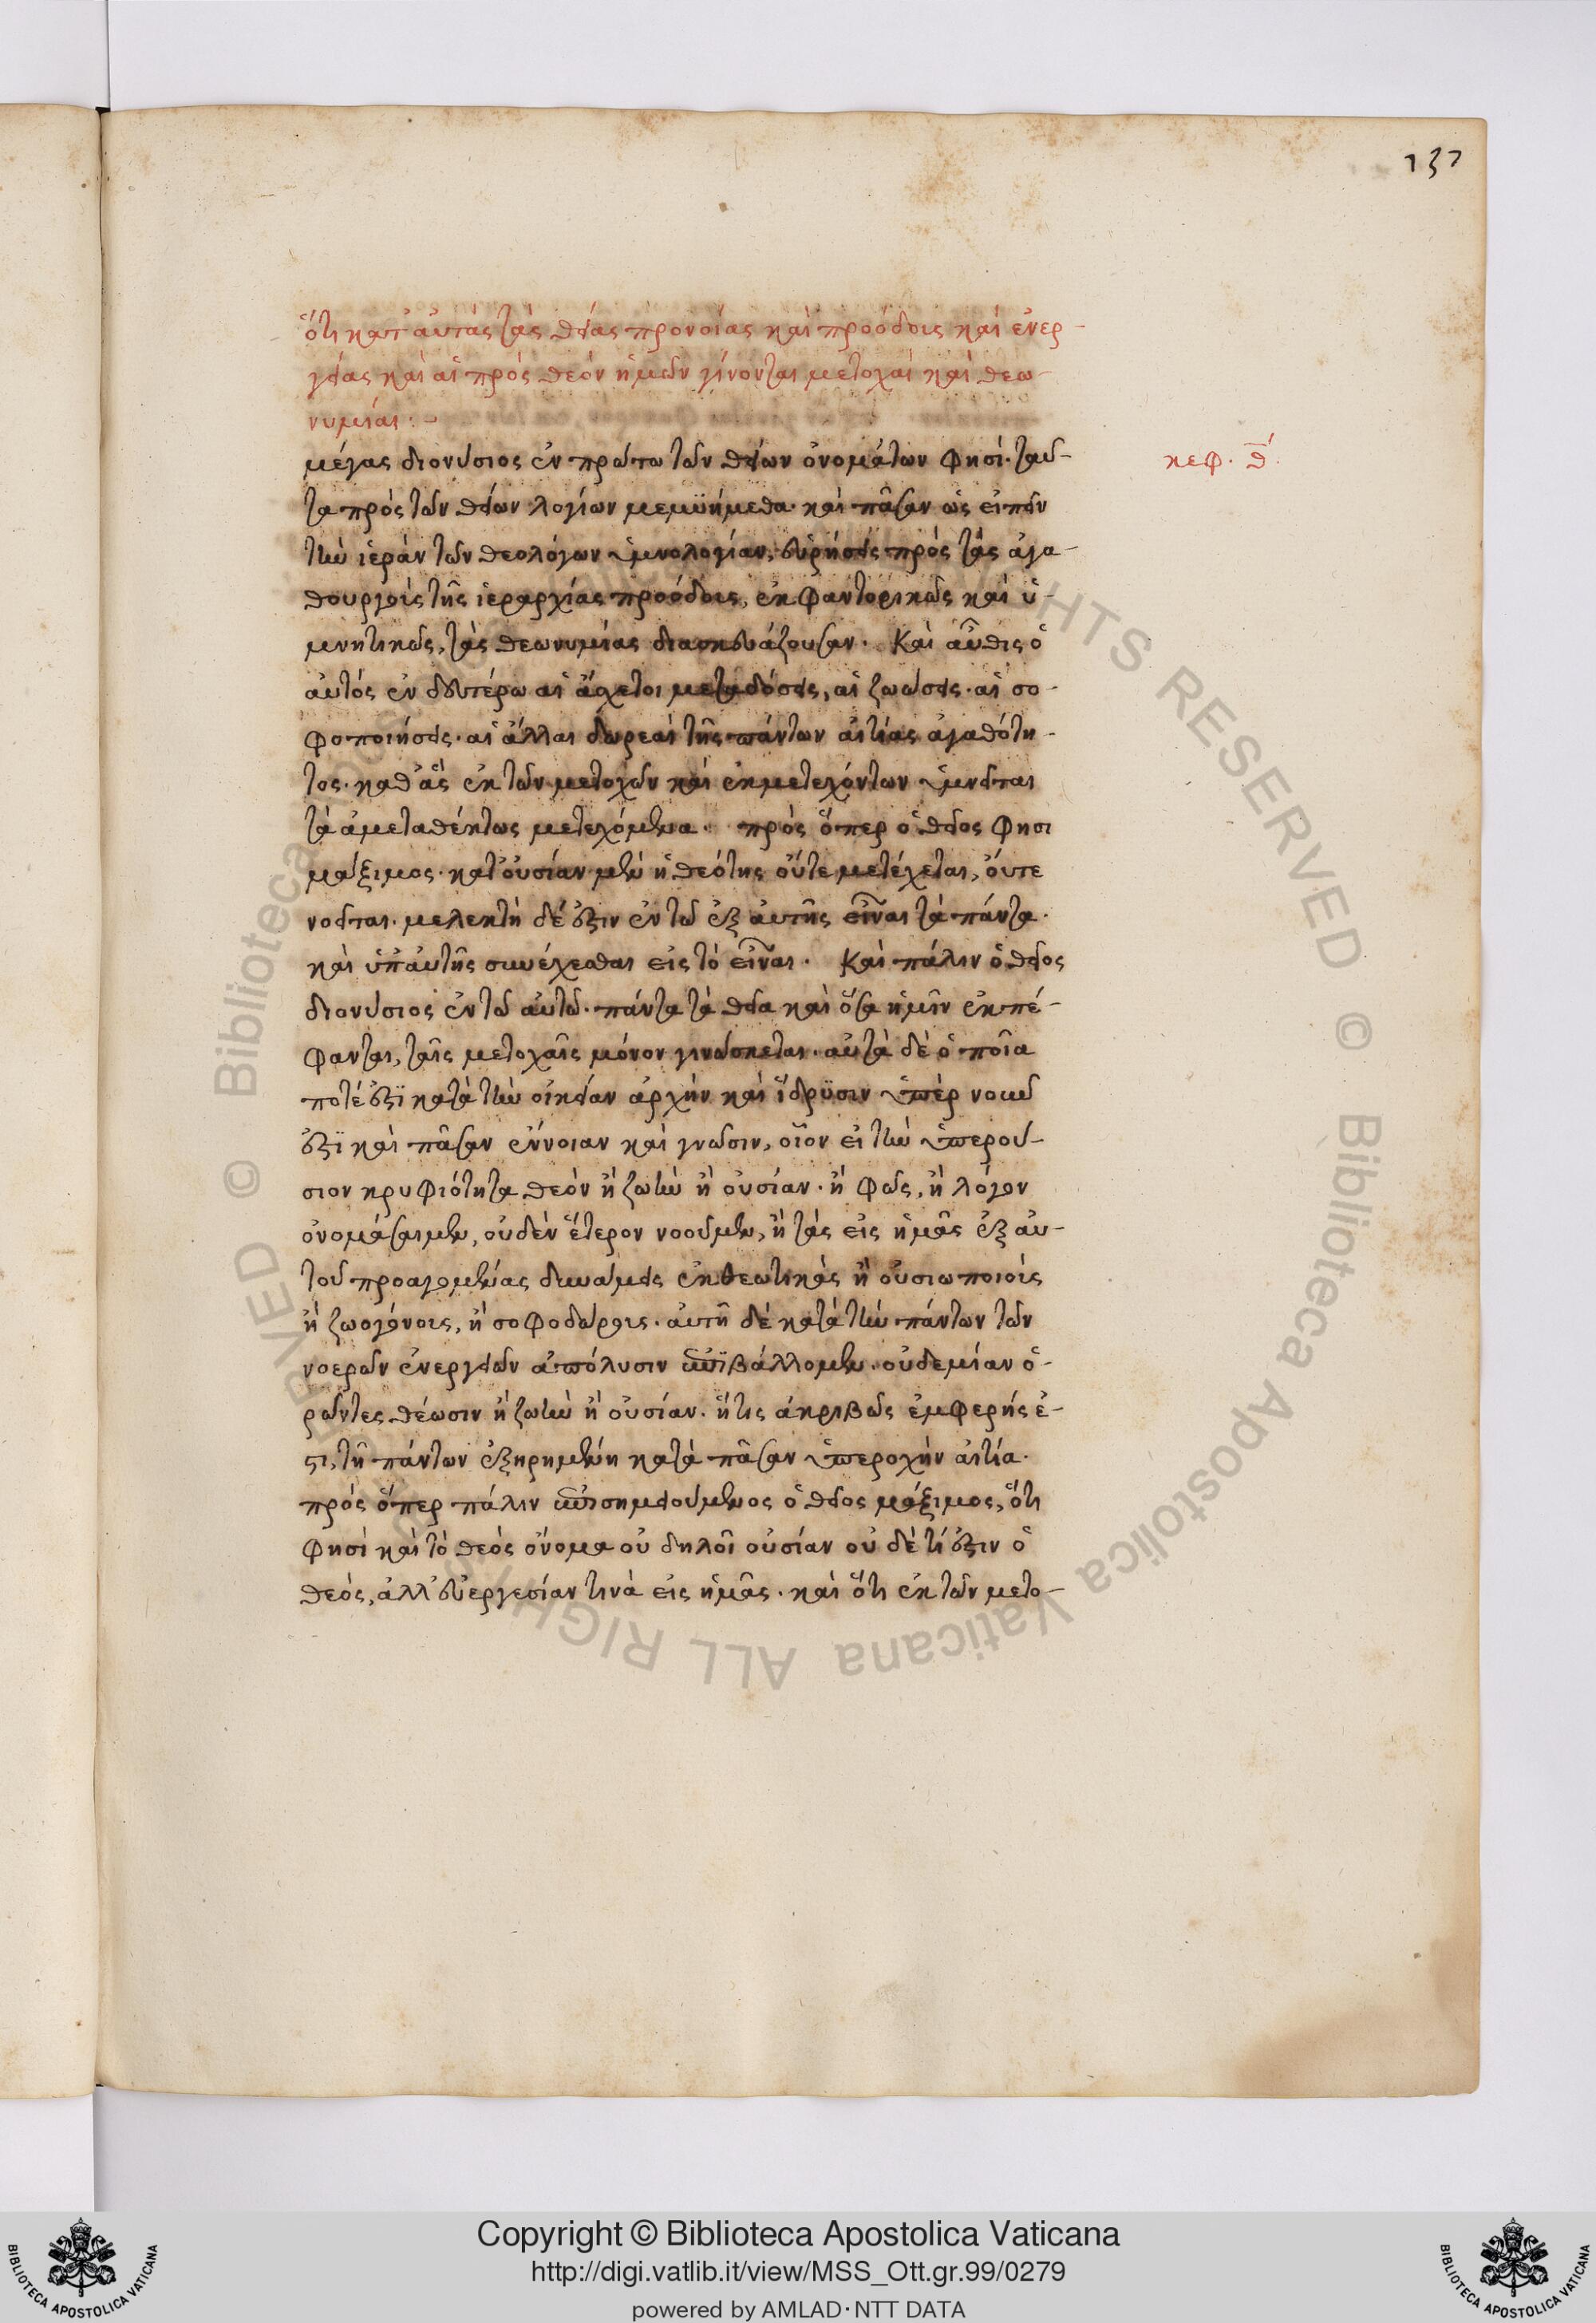 137
ὅτι κατ' αὐτὰς τὰς θείας προνοίας καὶ προόδους καὶ ἐνερ-
γείας καὶ αἱ πρὸς θεὸν ἡμῶν γίνονται μετοχαὶ καὶ θεω-
νυμίαι :-
μέγας διονύσιος ἐν πρώτω τῶν θείων ὀνομάτων φησί· ταῦ-
κεφ. θ'.
τα πρὸς τῶν θείων λογίων μεμϋήμεθα· καὶ πᾶσαν ὡς εἰπεῖν
τὴν ἱερὰν τῶν θεολόγων ὑμνολογίαν, εὑρήσεις πρὸς τὰς ἀγα-
θουργοὺς τῆς ἱεραρχίας προόδους, ἐκφαντορικῶς καὶ ὑ-
μνητικῶς, τὰς θεωνυμίας διασκευάζουσαν. Καὶ αὖθις ὁ
αὐτός ἐν δευτέρω αἱ ἄσχετοι μεταδόσεις, αἱ ζωώσεις· αἱ σο-
φοποιήσεις· αἱ ἄλλαι δωρεαὶ τῆς πάντων αἰτίας ἀγαθότη-
τος· καθ' ἃς ἐκ τῶν μετοχῶν καὶ ἐκ μετεχόντων ὑμνεῖται
τὰ ἀμεταθέκτως μετεχόμενα· πρὸς ὅπερ ὁ θεῖος φησι
μάξιμος· κατ' οὐσίαν μὲν ἡ θεότης οὔτε μετέχεται, οὔτε
νοεῖται· μελεκτὴ δέ ἐστιν ἐν τῶ ἐξ αὐτῆς εἶναι τὰ πάντα·
καὶ ὑπ' αὐτῆς συνέχεσθαι εἰς τὸ εἶναι. Καὶ πάλιν ὁ θεῖος
διονύσιος ἐν τῶ αὐτῶ· πάντα τὰ θεῖα καὶ ὅσα ἡμῖν ἐκπέ-
φανται, ταῖς μετοχαῖς μόνον γινώσκεται· αὐτὰ δὲ ὁποῖα
ποτέ ἐστϊ κατὰ τὴν οἰκείαν ἀρχὴν καὶ ἵδρϋσιν ὑπὲρ νοῦν
ἐστϊ καὶ πᾶσαν ἔννοιαν καὶ γνῶσιν, οἷον εἰ τὴν ὑπερού-
σιον κρυφιότητα θεὸν ἢ ζωὴν ἢ οὐσίαν· ἢ φῶς, ἢ λόγον
ὀνομάσαιμεν, οὐδὲν ἕτερον νοοῦμεν, ἢ τὰς εἰς ἡμᾶς ἐξ αὐ-
τοῦ προαγομένας δυνάμεις ἐκθεωτικὰς ἢ οὐσιωποιοὺς
ἢ ζωογόνους, ἢ σοφοδώρους· αὐτῆ δὲ κατὰ τὴν πάντων τῶν
νοερῶν ἐνεργειῶν ἀπόλυσιν ἐπϊβάλλομεν· οὐδεμίαν ὁ-
ρῶντες θέωσιν ἢ ζωὴν ἢ οὐσίαν· ἥτις ἀκριβῶς ἐμφερής ἐ-
στι, τῆ πάντων ἐξηρημένη κατὰ πᾶσαν ὑπεροχὴν αἰτία·
πρὸς ὅπερ πάλιν ἐπισημειούμενος ὁ θεῖος μάξιμος, ὅτι
φησὶ καὶ τὸ θεὸς ὄνομα οὐ δηλοῖ οὐσίαν οὐ δὲ τί ἐστιν ὁ
θεός, ἀλλ' εὐεργεσίαν τινὰ εἰς ἡμᾶς· καὶ ὅτι ἐκ τῶν μετο-
© Biblioteca Apostolica Vaticana ALL RIGHTS RESERVED
Copyright © Biblioteca Apostolica Vaticana
http://digi.vatlib.it/view/MSS_Ott.gr.99/0279
powered by AMLAD·NTT DATA
BIBLIOTECA APOSTOLICA VATICANA
BIBLIOTECA APOSTOLICA VATICANA